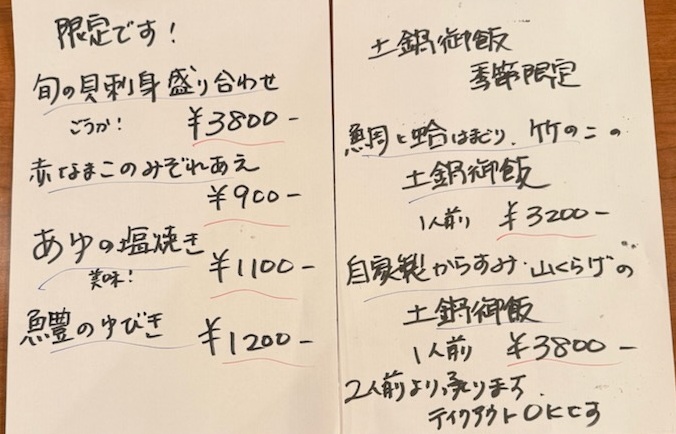 限定です!
旬の貝刺身盛り合わせ
ごうか! ¥3800-
赤なまこのみぞれあえ
¥900-
あゆの塩焼き
美味! ¥1100-
鱧のゆびき ¥1200-
土鍋御飯
季節限定
鯛と蛤はまぐり、竹のこの
土鍋御飯
1人前 ¥3200-
自家製からすみ・山くらげの
土鍋御飯
1人前 ¥3800-
2人前より承ります、
テイクアウトOKです